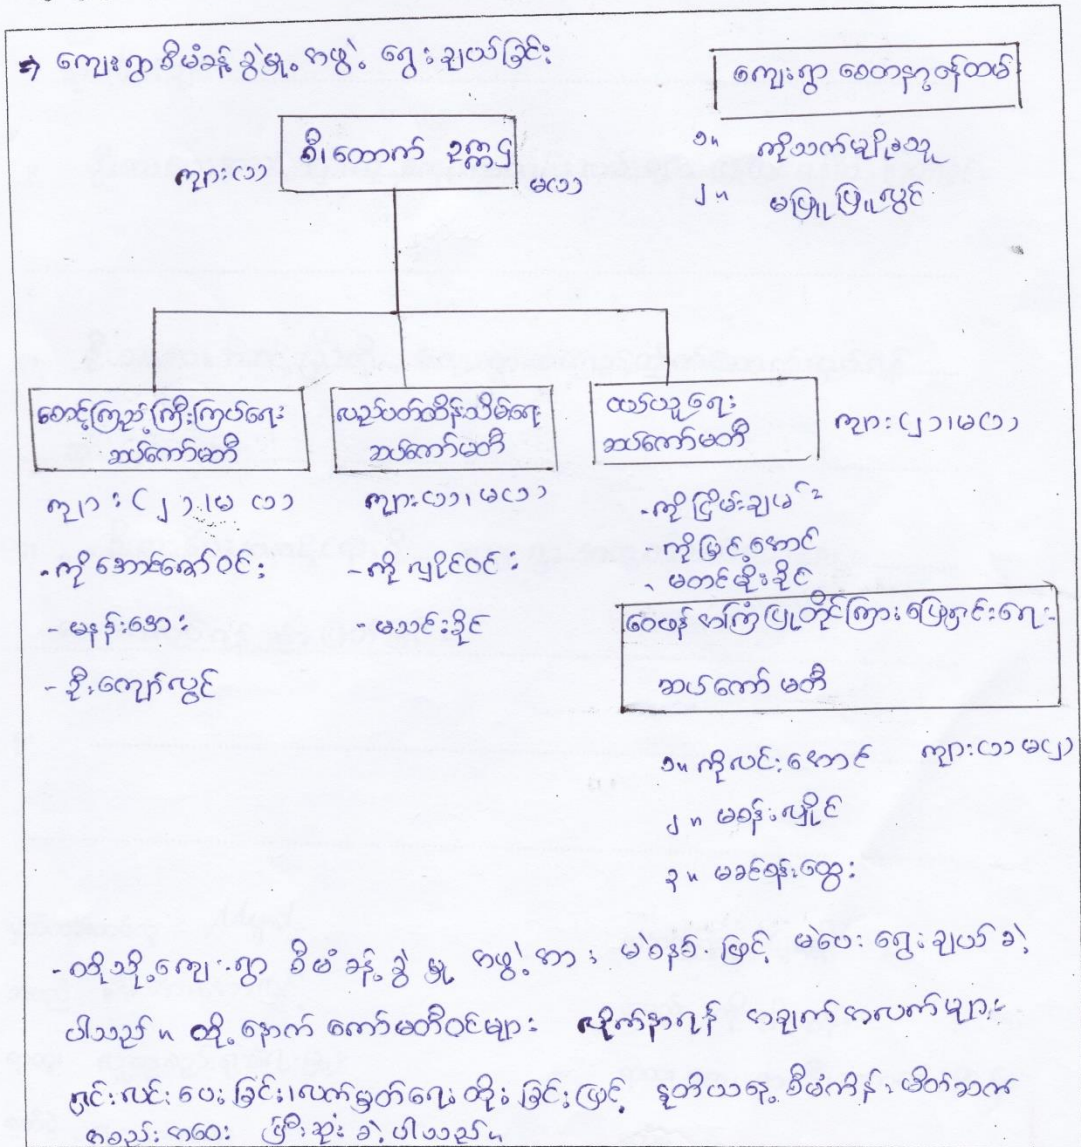 ⇒ ကျေးရွာ စီမံခန့်ခွဲမှု့ အဖွဲ့ ရွေးချယ်ခြင်း
ကျေးရွာ စေတနာ့ဝန်ထမ်း
စီ၊ထောက် ဥက္ကဋ္ဌ
ကျား(၁)
မ(၁)
၁။ ကိုသက်မျိုးသူ
၂။ မဖြူဖြူလွင်
စောင့်ကြည့်ကြီးကြပ်ရေး
ဆပ်ကော်မတီ
ကျား (၂)၊မ (၁)
- ကိုအောင်ဇော်ဝင်း
မနန်းအေး
- ဦးကျော်လွင်
လည်ပတ်ထိန်းသိမ်ရေး
ဆပ်ကော်မတီ
ကျား(၁)၊မ(၁)
- ကိုလှိုင်ဝင်း
- မသင်းခိုင်
ထယ်ယူရေး
ဆပ်ကော်မတီ
ကျား(၂)၊မ(၁)
- ကိုငြိမ်းချမ်း
- ကိုမြင့်အောင်
- မတင်မိုးခိုင်
ဝေဖန်အကြံပြုတိုင်ကြားဖြေရှင်းရေး
ဆပ်ကော်မတီ
၁။ ကိုလင်းအောင်
ကျား(၁) မ(၂)
၂။ မစန်းလှိုင်
၃။ မခင်ရန်းထွေး
- ထိုသို့ကျေးရွာ စီမံခန့်ခွဲမှု အဖွဲ့အား မဲစနစ်ဖြင့် မဲပေးရွေးချယ်ခဲ့
ပါသည်။ ထို့နောက် ကော်မတီဝင်များ လိုက်နာရန် အချက်အလက်များ
ရှင်းလင်းပေးခြင်း၊လက်မှတ်ရေးထိုးခြင်းဖြင့် ဒုတိယနေ့ စီမံကိန်းမိတ်ဆက်
အစည်းအဝေး ပြီးဆုံးခဲ့ပါသည်။